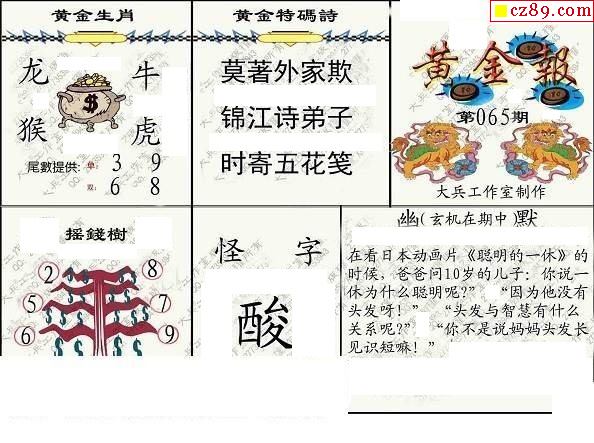 cz89.com
黄金生肖
龙 牛
猴 虎
尾數提供: 单: 3 9
双: 6 8
黄金特碼詩
莫著外家欺
锦江诗弟子
时寄五花笺
黄金報
第065期
大兵工作室制作
摇錢樹
2 8
5 7
6 9
怪 字
酸
幽(玄机在期中)默
在看日本动画片《聪明的一休》的
时候，爸爸问10岁的儿子：你说一
休为什么聪明呢?” “因为他没有
头发呀！” “头发与智慧有什么
关系呢?” “你不是说妈妈头发长
见识短嘛！”